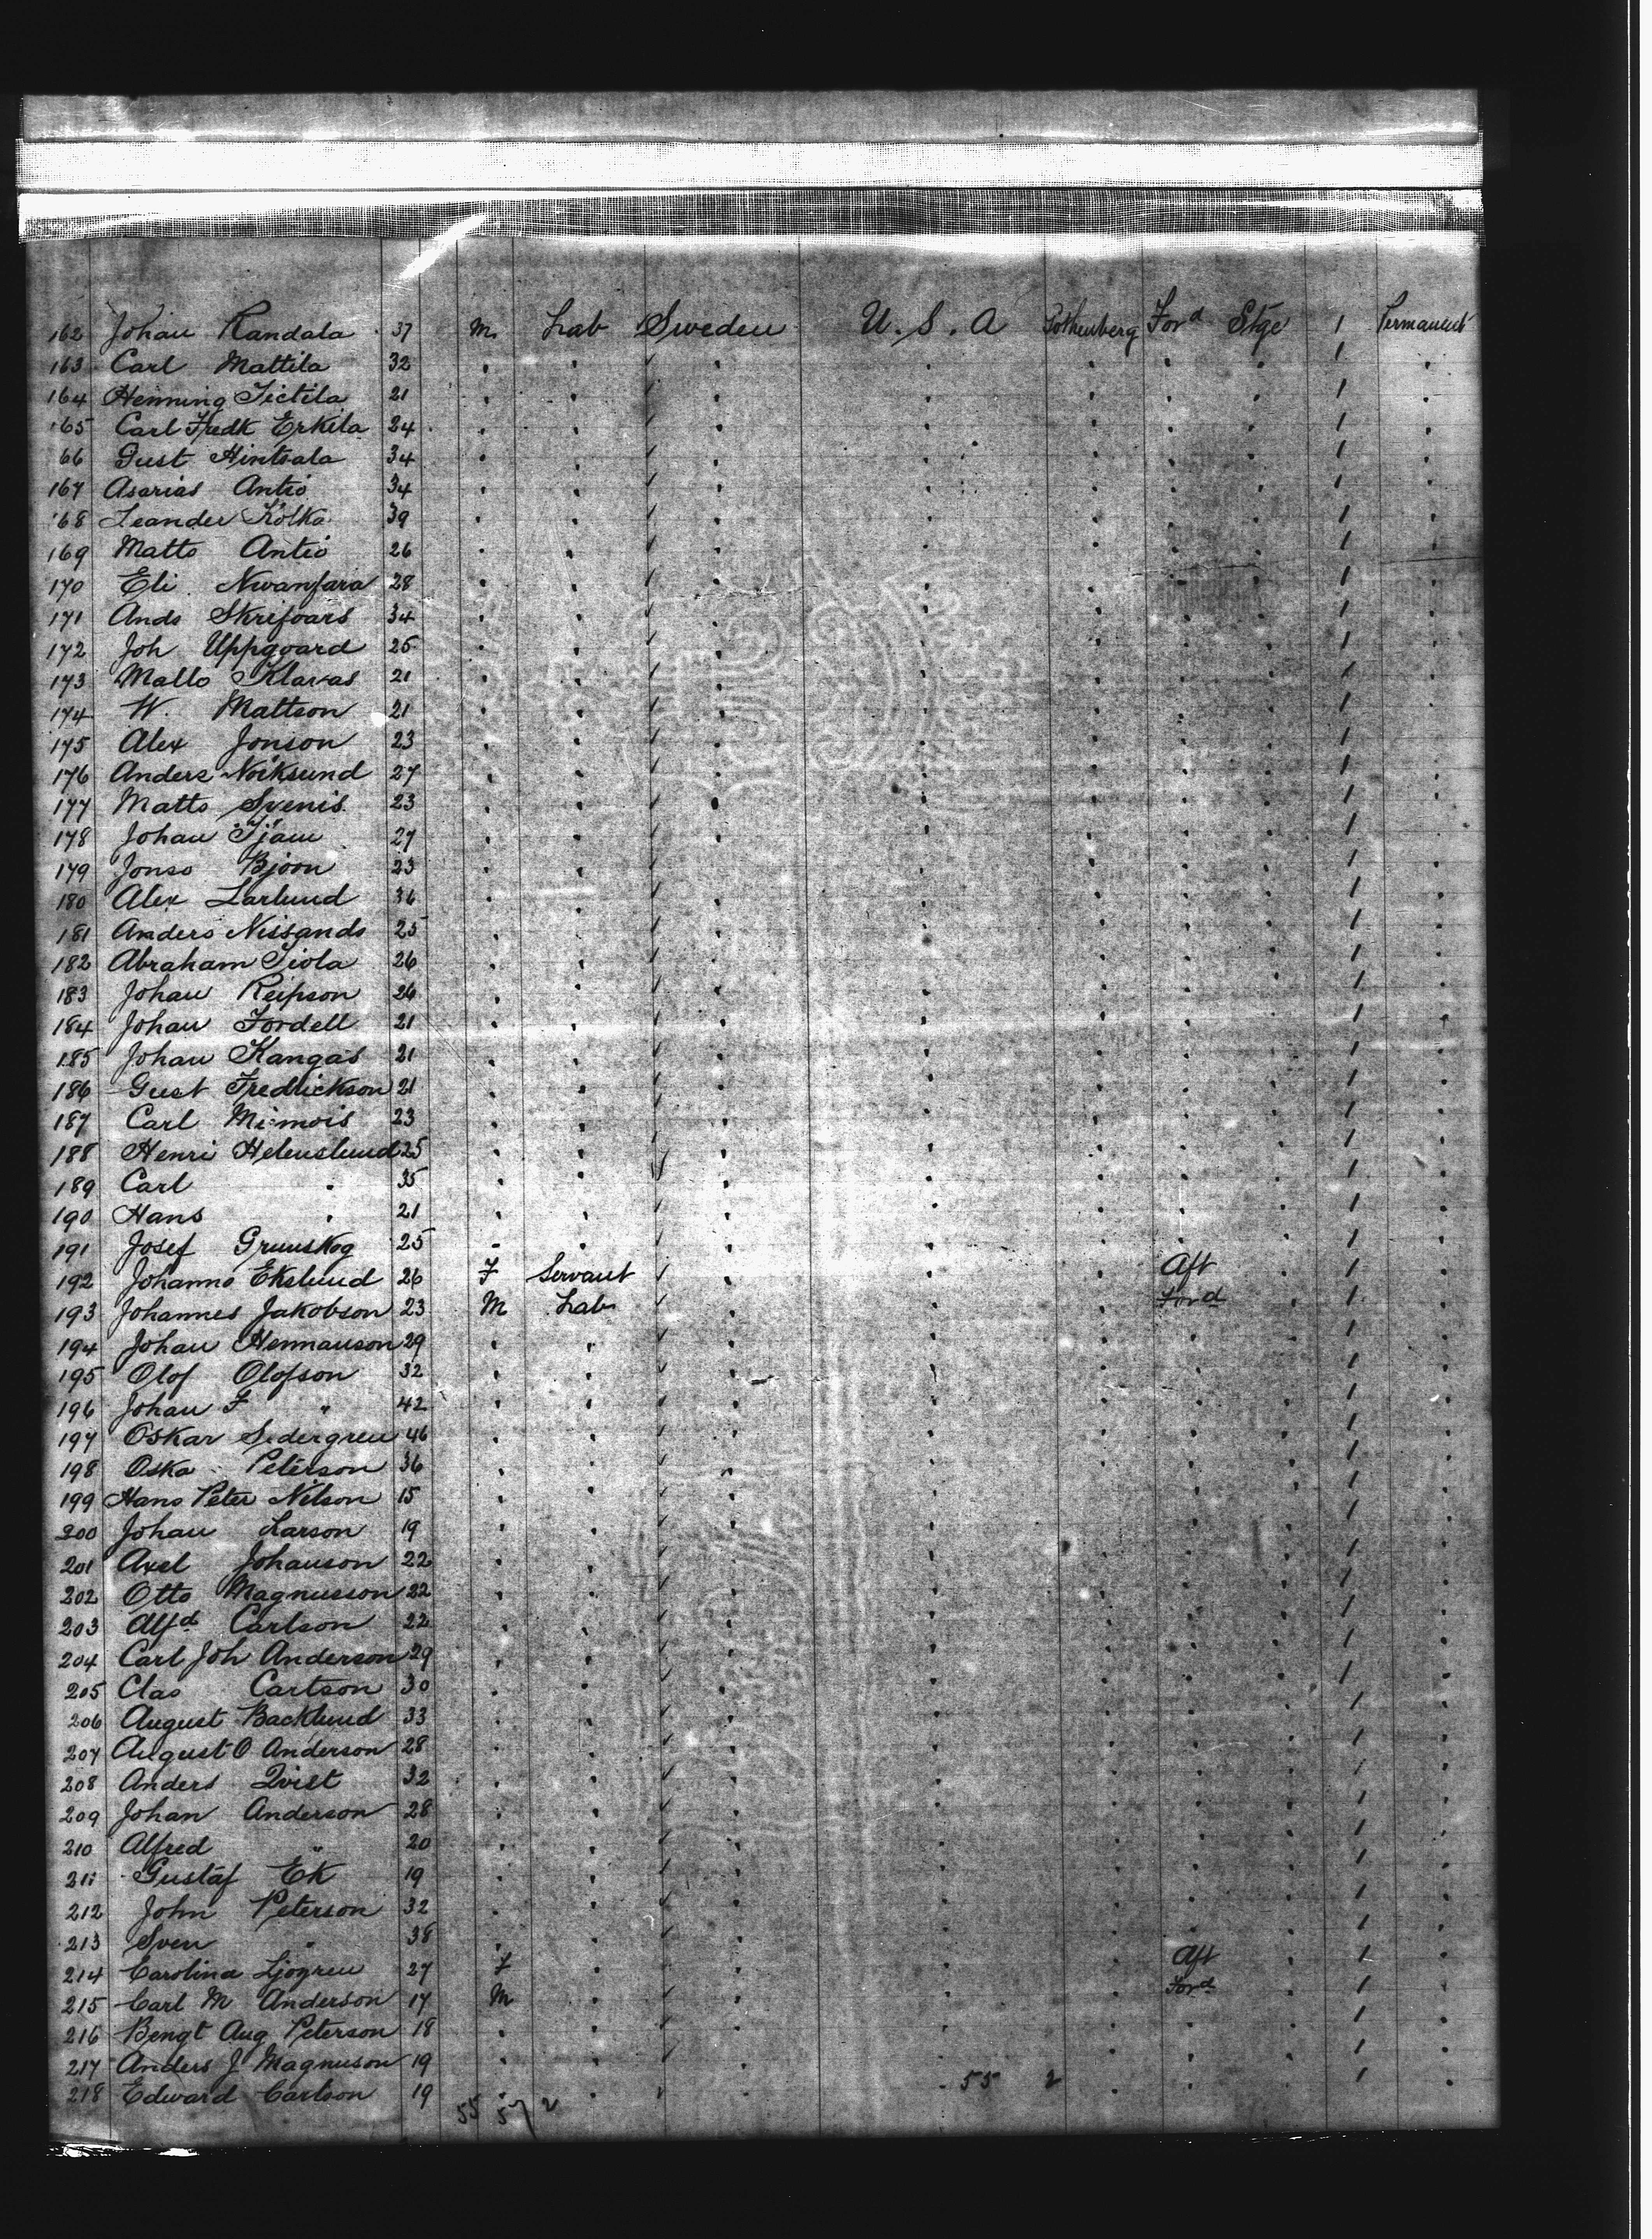 162 Johan Kandala 37 M. Lab Sweden U. S. A Gothenberg For'd Stge 1 Permanent
163 Carl Mattila 32 1
164 Henning Tictila 21 1
165 Carl Fredk Erkila 24 1
66 Gust Hintsala 34 1
167 Asarias Antio 34 1
168 Leander Kolka 39 1
169 Matts Antio 26 1
170 Eli 28 1
171 Ands Skrifvars 34 1
172 Joh Uppgoard 25 1
173 Matto Klavas 21 1
174 W. Mattson 21 1
175 Alex Jonson 23 1
176 Anders Norksund 27 1
177 Matts Svenis 23 1
178 Johan 27 1
179 Jonso Bjoon 23 1
180 Alex Larlund 36 1
181 Anders Nissands 25 1
182 Abraham Tiola 26 1
183 Johan Reipson 26 1
184 Johan Fordell 21 1
185 Johan Kangas 21 1
186 Gust Fredrickson 21 1
187 Carl 23 1
188 Henri Helenslund 25 1
189 Carl " 35 1
190 Hans " 21 1
191 Josef Grunskog 25 1
192 Johanna Ekslund 26 F Servant Aft 1
193 Johannes Jakobson 23 M Lab For'd 1
194 Johan Hermanson 29 1
195 Olof Olofson 32 1
196 Johan F " 42 1
197 Oskar Sedergren 46 1
198 Oska Peterson 36 1
199 Hans Peter Nilson 15 1
200 Johan Larson 19 1
201 Axel Johanson 22 1
202 Otto Magnusson 22 1
203 Alfd Carlson 22 1
204 Carl Joh Anderson 29 1
205 Clas Carlson 30 1
206 August Backlund 33 1
207 August O Anderson 28 1
208 Anders Qvist 32 1
209 Johan Anderson 28 1
210 Alfred " 20 1
211 Gustaf Ek 19 1
212 John Peterson 32 1
213 Sven " 38 1
214 Carolina Sjogren 27 F Aft 1
215 Carl M Anderson 17 M For'd 1
216 Bengt Aug Peterson 18 1
217 Anders J Magnuson 19 1
218 Edward Carlson 19 55 2 1
55 57 2